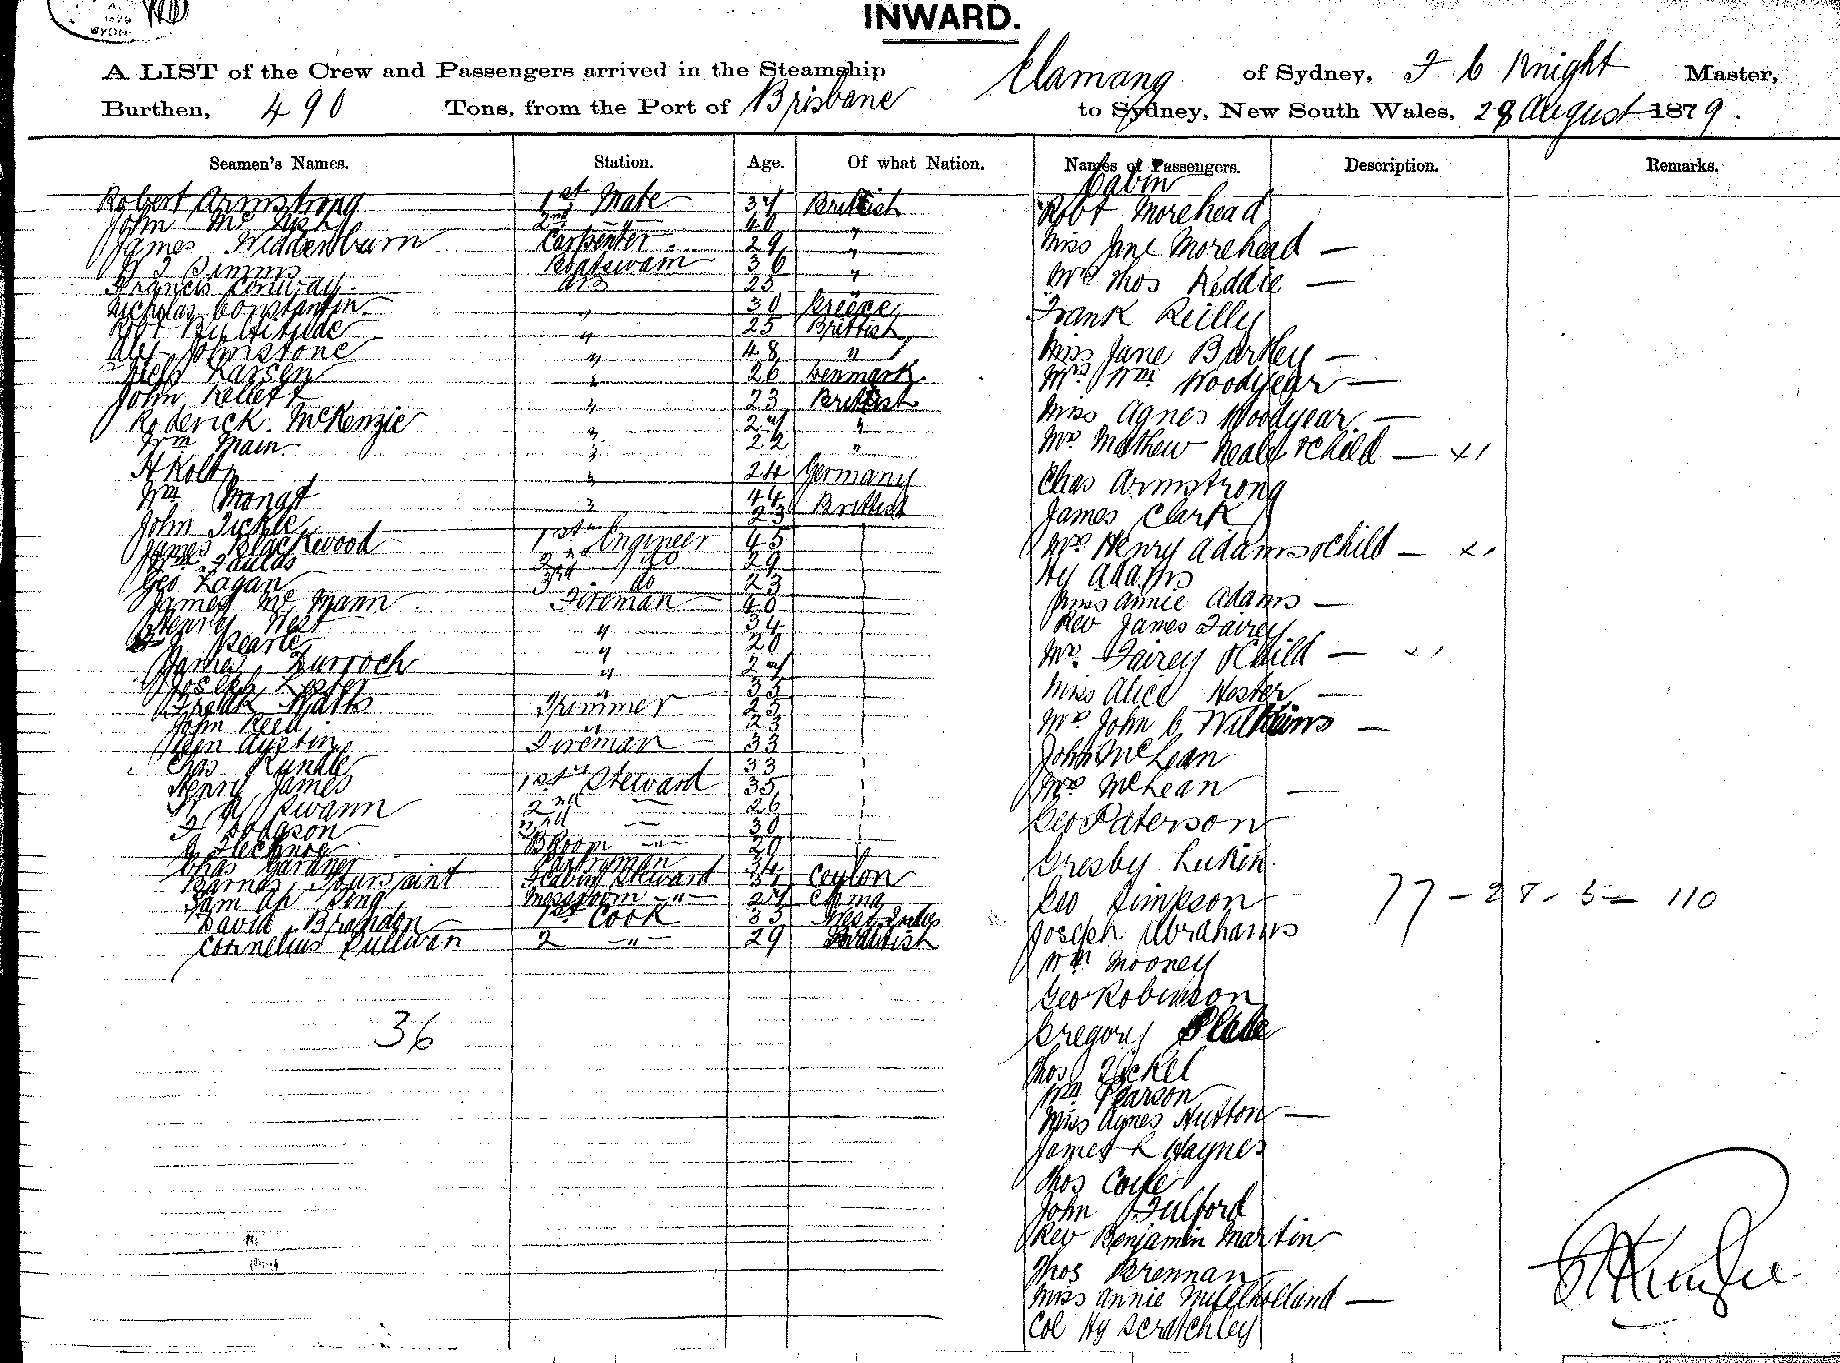 INWARD.
A LIST of the Crew and Passengers arrived in the Steamship Elamang of Sydney, F C Knight Master,
Burthen, 490 Tons, from the Port of Brisbane to Sydney, New South Wales, 28 August 1879.
Seamen's Names. Station. Age. Of what Nation. Names of Passengers. Description. Remarks.
Cabin
Robert Armstrong 1st Mate 37 Brittish
John Mc 2nd " 40 "
James Widdenburn Carpenter 29 "
Simms Boatswain 36 "
Francis Conway AB 25 "
Nicholas Constantin " 30 Greece
Robt " 25 Brittish
Alex Johnstone " 48 "
Larsen " 26 Denmark
John Kellett " 23 Brittish
Roderick McKenzie " 24 "
Wm Main " 22 "
H Kolt " 24 Germany
Wm " 44 Brittish
John Tickle 23
James Blackwood 1st Engineer 45
Wm Faulds 2nd do 29
Geo Lagan 3rd do 23
James Mc Mann Fireman 40
Henry West " 34
Pearle " 20
James Durroch " 24
Joseph Lester " 33
Fredk Trimmer 23
John Reed " 23
Ben Austin Fireman 33
Chas Rundle 33
Henry James 1st Steward 35
Swann 2nd — 26
Hodgson 3rd — 30
B Room " 20
Chas Gardner 34
Barnes Toursaint F Cabin Steward Ceylon
Sam Ah Song Messroom " 24 China
David Brandon 1st Cook 33 West Indies
Cornelius Sullivan 2 " 29 Brittish
36
Robt Morehead
Miss Jane Morehead —
Mrs Thos Reddie —
Frank Reilly
Miss Jane Bartley —
Mrs Wm Woodyear —
Miss Agnes Woodyear —
Mrs Mathew Neale & Child — x1
Chas Armstrong
James Clark
Mrs Henry Adams & Child — x1
Hy Adams
Miss Annie Adams —
Rev James Fairey
Mrs Fairey & Child — x1
Miss Alice Hester —
Mrs John C Wilkins —
John McLean
Mrs McLean —
Geo Paterson
Gresby Lukin
Geo Simpson
77 - 28 - 5 — 110
Joseph Abrahams
Wm Mooney
Geo Robinson
Gregory
Thos
Wm Pearson
Miss Agnes Hutton —
James R Haynes
Thos Coyle
John Fulford
Rev Benjamin Martin
Thos Brennan
Miss Annie Mullholland —
Col Hy Scratchley